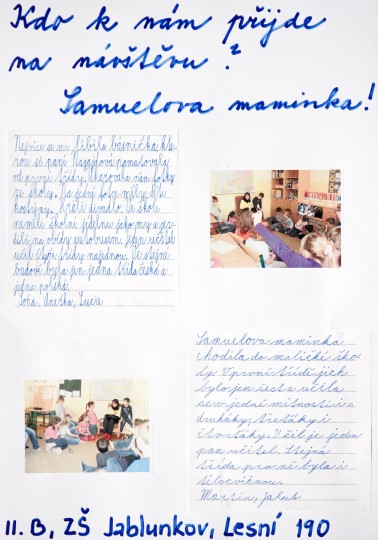 Kdo k nám přijde
na návštěvu?
Samuelova maminka!
Nejvíce se mi líbila básnička, kte-
rou si paní pamatovala
od první třídy. Ukazovala nám fotky
ze školy. Na jedné fotce měly děti
kostýmy. Hráli divadlo. Ve škole
neměli školní jídelnu jako my a jez-
dili na obědy autobusem. Jeden učitel
učil čtyři třídy najednou. Ve stejné
budově byla jen jedna třída česká a
jedna polská.
Soňa, Anežka, Lucie
Samuelova maminka
chodila do maličké ško-
ly. V první třídě jich
bylo jen šest a učila
se v jedné místnosti i s
druháky, třeťáky i
čtvrťáky. Učil je jeden
pan učitel. Stejná
třída pro ně byla i
tělocvičnou.
Martin, Jakub
II. B, ZŠ Jablunkov, Lesní 190